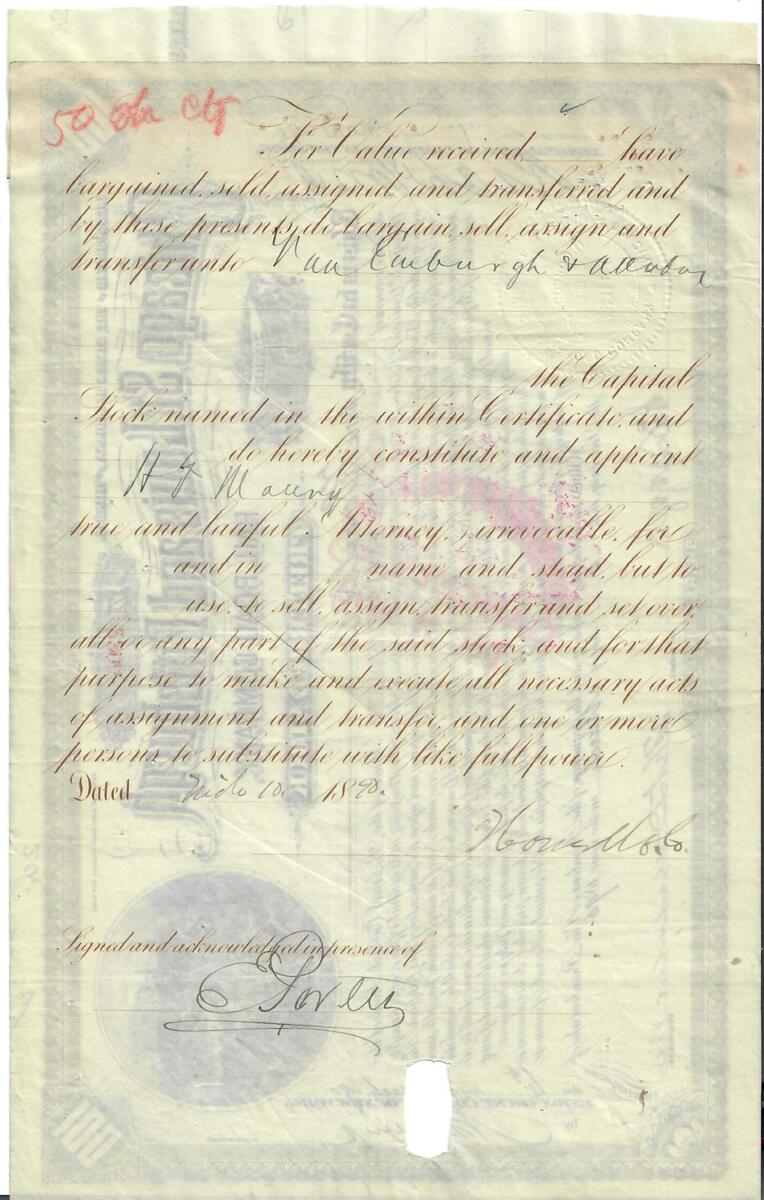 50
For Value received have
bargained, sold, assigned and transferred and
by these presents, do bargain, sell, assign and
transfer unto Van Emburgh & Atterbury
the Capital
Stock named in the within Certificate, and
do hereby constitute and appoint
H
true and lawful Attorney, irrevocable, for
and in name and stead, but to
use, to sell, assign, transfer and set over,
all or any part of the said stock, and for that
purpose to make and execute all necessary acts
of assignment and transfer, and one or more
persons to substitute with like full power.
Dated 10. 1890.
Co.
Signed and acknowledged in presence of
Porter